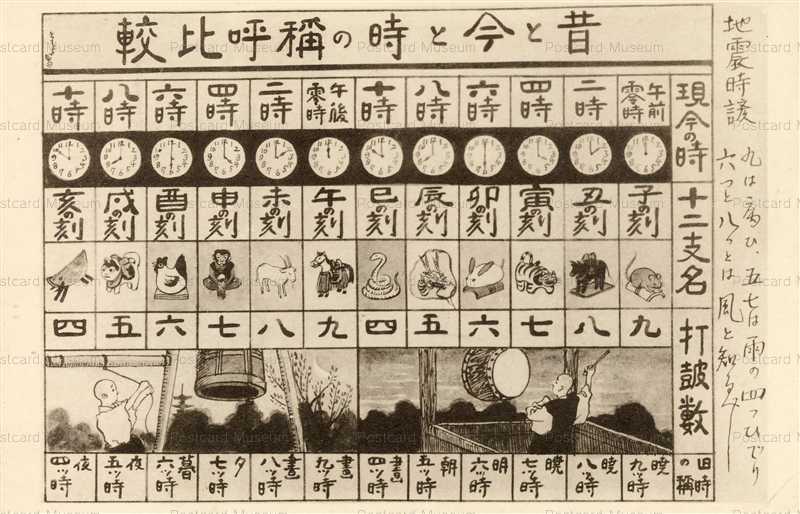 昔と今と時の稱呼比較
現今の時 午前零時 二時 四時 六時 八時 十時 午後零時 二時 四時 六時 八時 十時
十二支名 子の刻 丑の刻 寅の刻 卯の刻 辰の刻 巳の刻 午の刻 未の刻 申の刻 酉の刻 戌の刻 亥の刻
打皷数 九 八 七 六 五 四 九 八 七 六 五 四
旧時の稱 暁九ツ時 暁八ツ時 暁七ツ時 明六ツ時 朝五ツ時 晝四ツ時 晝九ツ時 晝八ツ時 夕七ツ時 暮六ツ時 夜五ツ時 夜四ツ時
地震時諺
九は病ひ、五七は雨の四つひでり
六つと八つとは風と知るべし
Postcard Museum